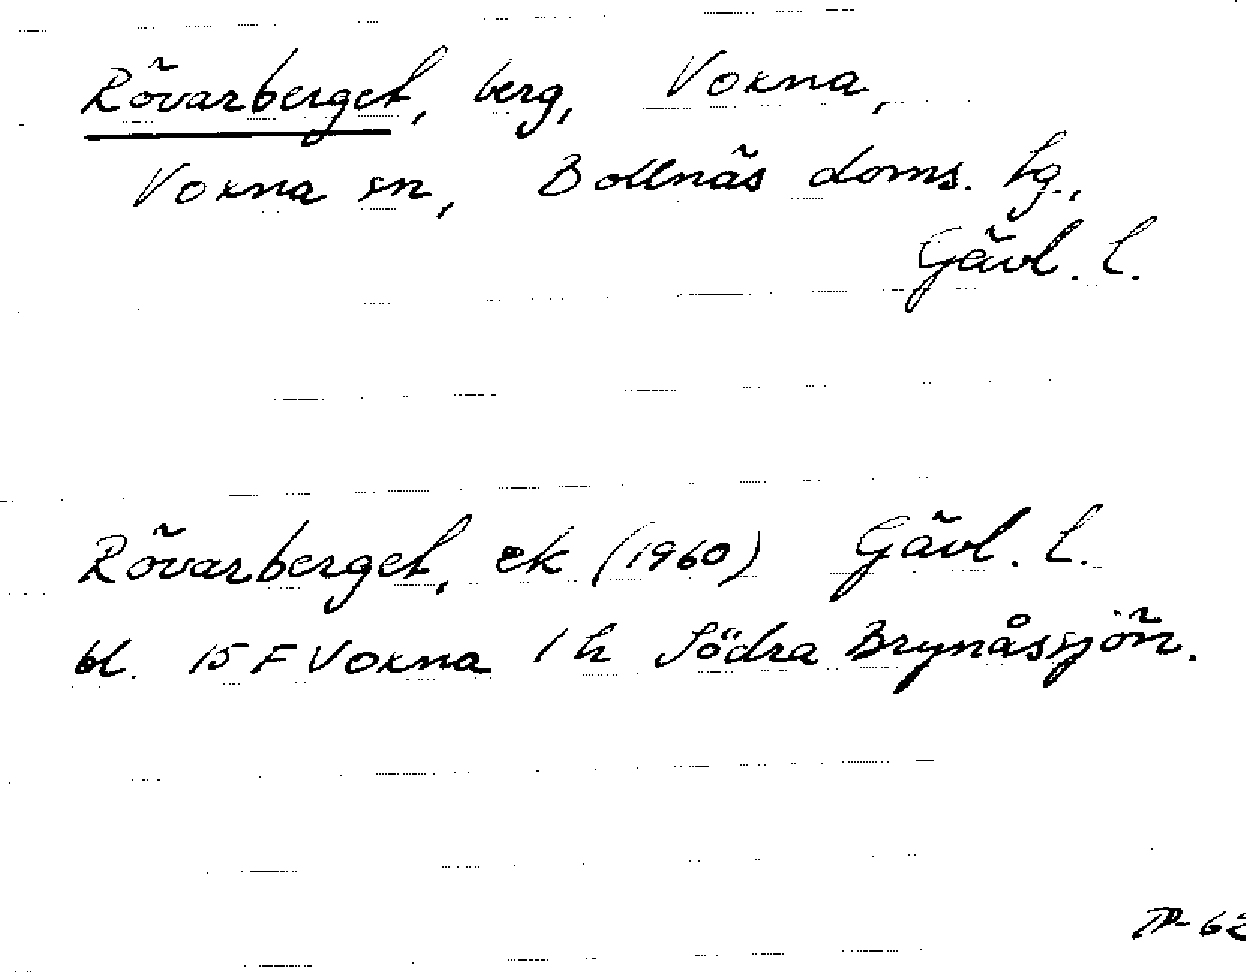 Rövarberget, berg, Voxna,
Voxna sn, Bollnäs doms. hg.,
Gävl. l.
Rövarberget, ek (1960) Gävl. l.
bl. 15 F Voxna 1 h Södra Brynåssjön.